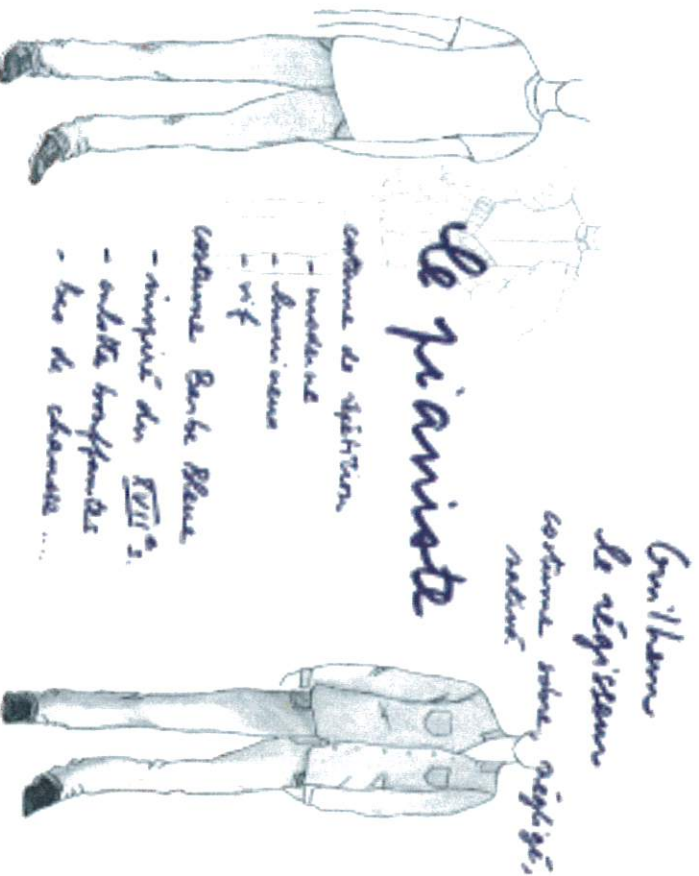 Guilhem
le régisseur
costume sobre, négligé,
Le pianiste
costume de répétition
- moderne
- lumineux
- vif
costume Barbe Bleue
- inspiré du XVIIe s.
- culotte bouffantes
- bas de chausse ....